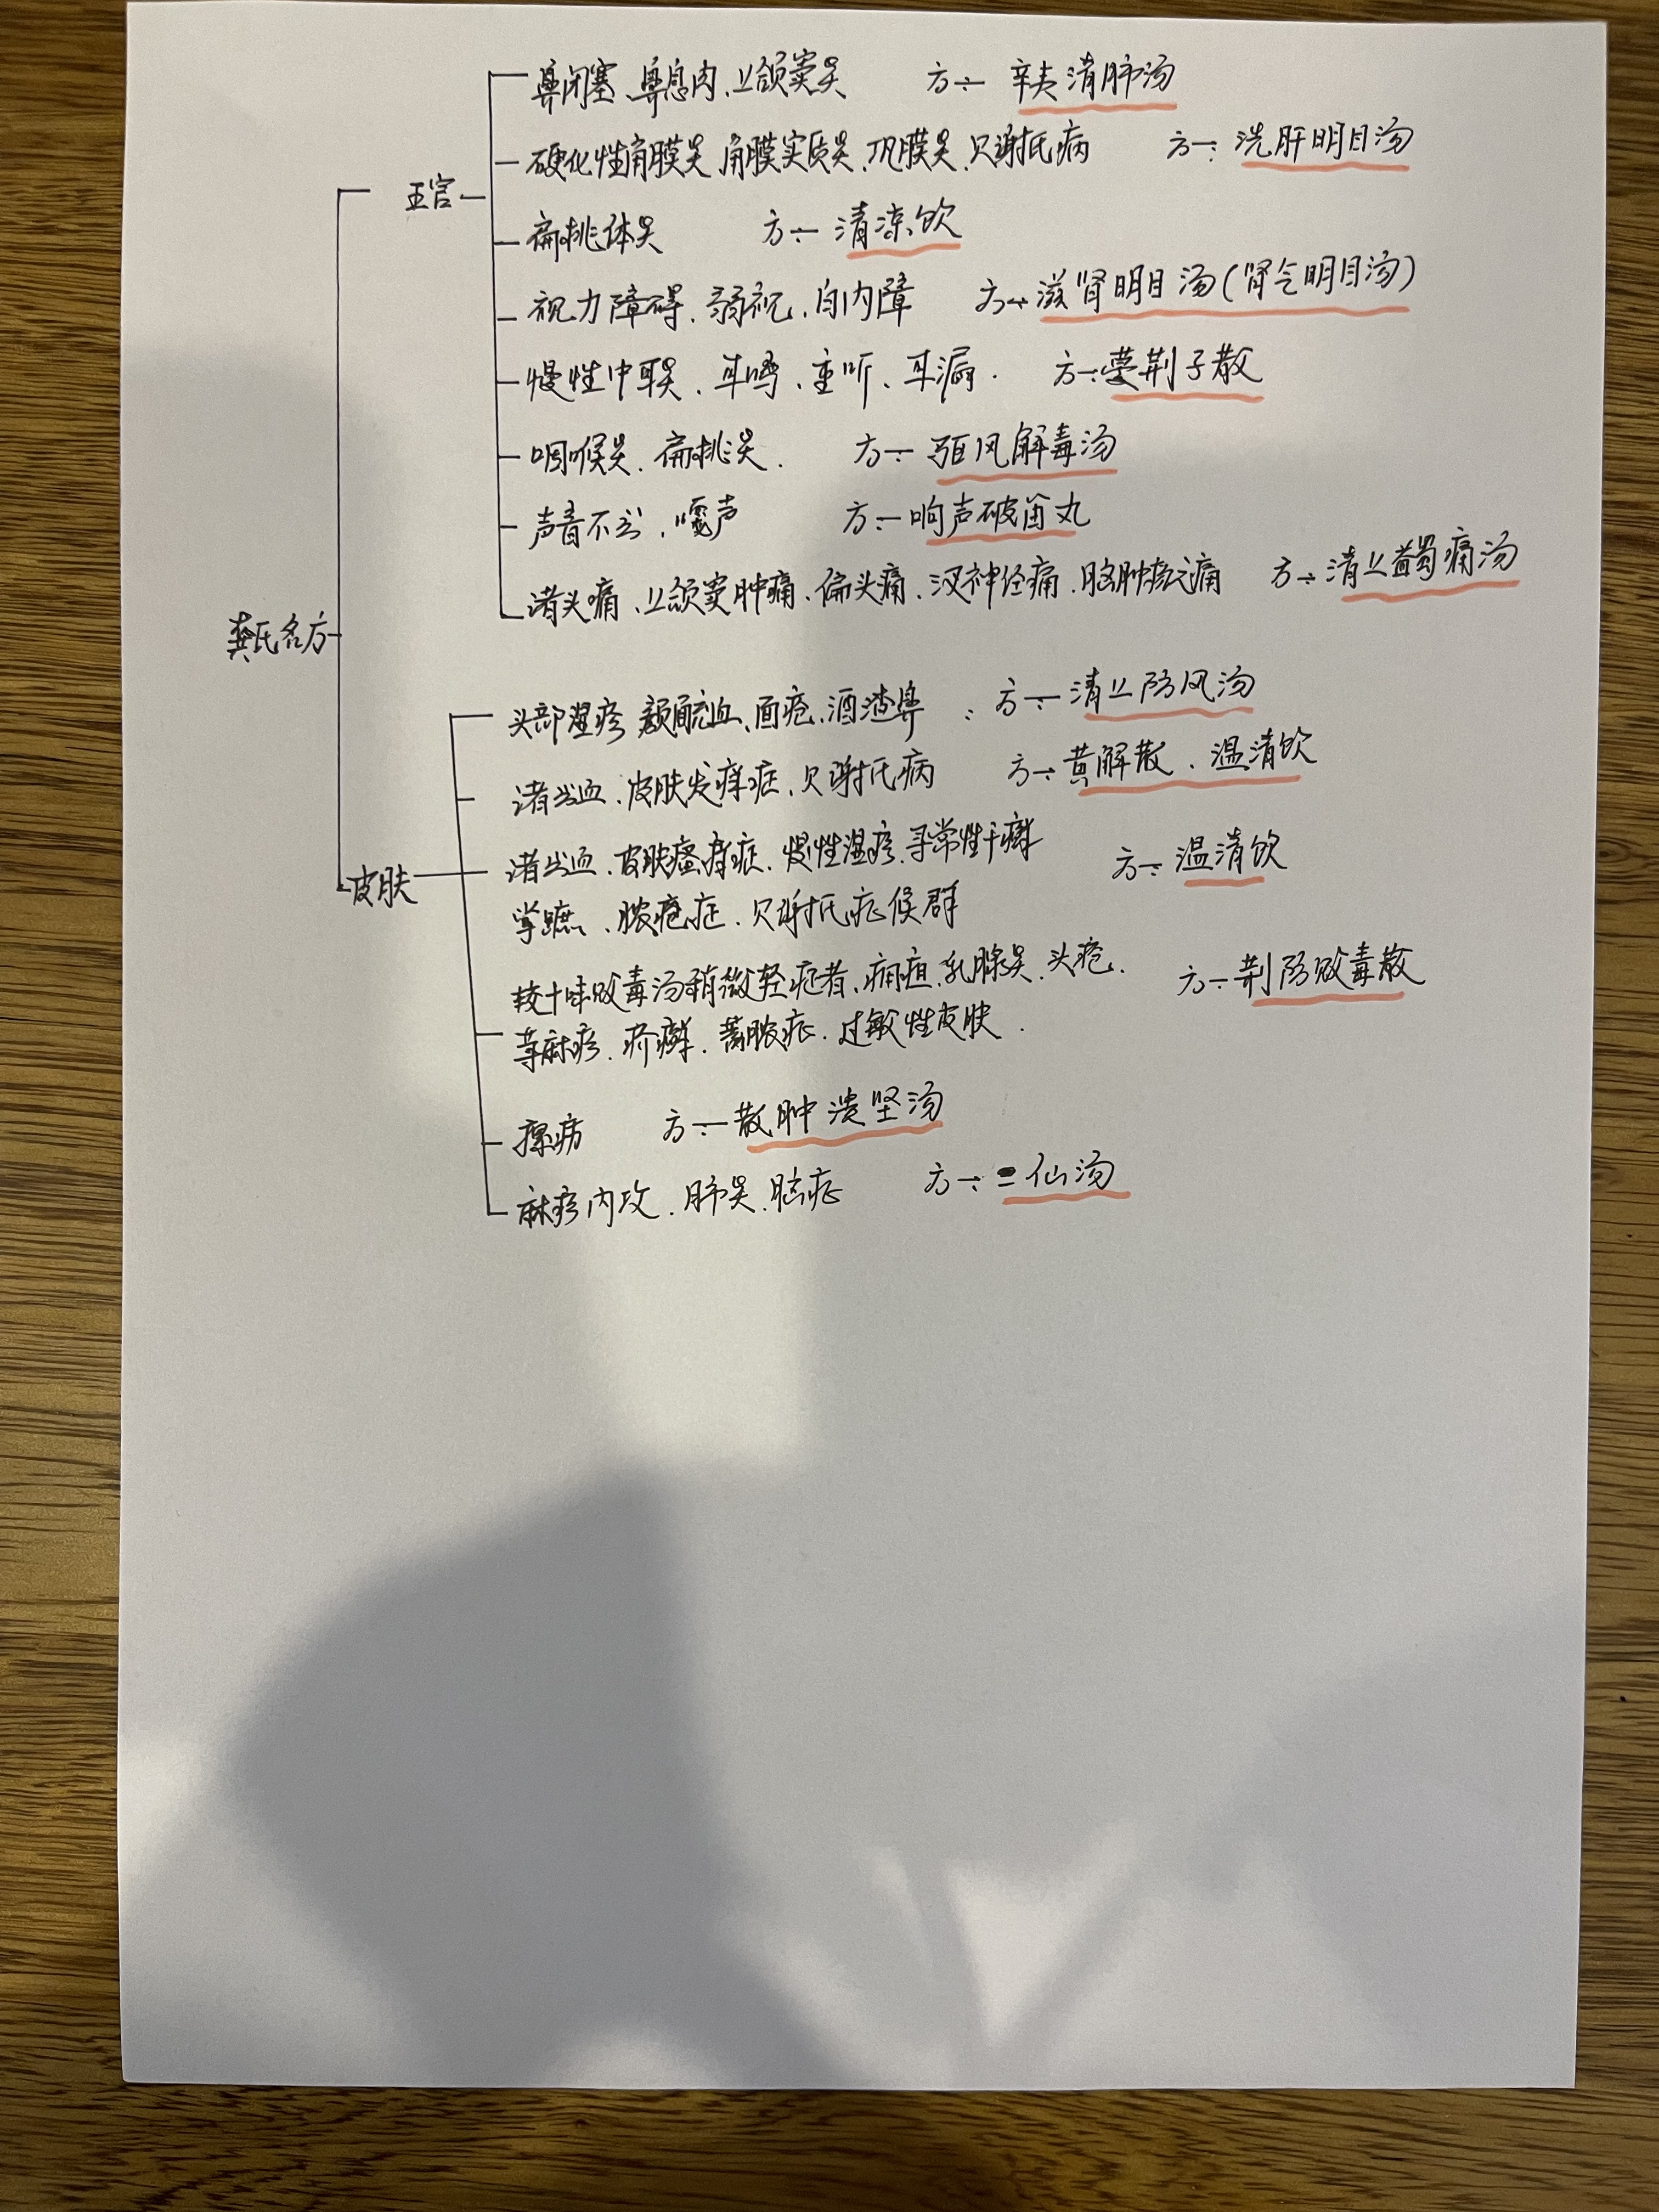 鼻闭塞、鼻息肉、上颌窦炎 方:— 辛夷清肺汤
硬化性角膜炎、角膜实质炎、巩膜炎、贝谢氏病 方:— 洗肝明目汤
五官
扁桃体炎 方:— 清凉饮
视力障碍、弱视、白内障 方:— 滋肾明目汤(肾气明目汤)
慢性中耳炎、耳鸣、重听、耳漏. 方:— 蔓荆子散
咽喉炎、扁桃炎. 方:— 驱风解毒汤
声音不出、嘎声 方:— 响声破笛丸
诸头痛、上颌窦肿痛、偏头痛、神经痛、脑肿疼痛 方:— 清上蠲痛汤
龚氏名方
头部湿疹、颜面充血、面疮、酒渣鼻 : 方:— 清上防风汤
诸出血、皮肤发痒症、贝谢氏病 方:— 黄解散、温清饮
诸出血、皮肤瘙痒症、慢性湿疹、寻常性干癣 方:— 温清饮
皮肤
掌蹠、脓疱症、贝谢氏症候群
较十味败毒汤稍微轻症者、痈疽、乳腺炎、头疮、 方:— 荆防败毒散
荨麻疹、疥癣、蓄脓症、过敏性皮肤.
瘰疬 方:— 散肿溃坚汤
麻疹内攻、肺炎、脑症 方:— 二仙汤